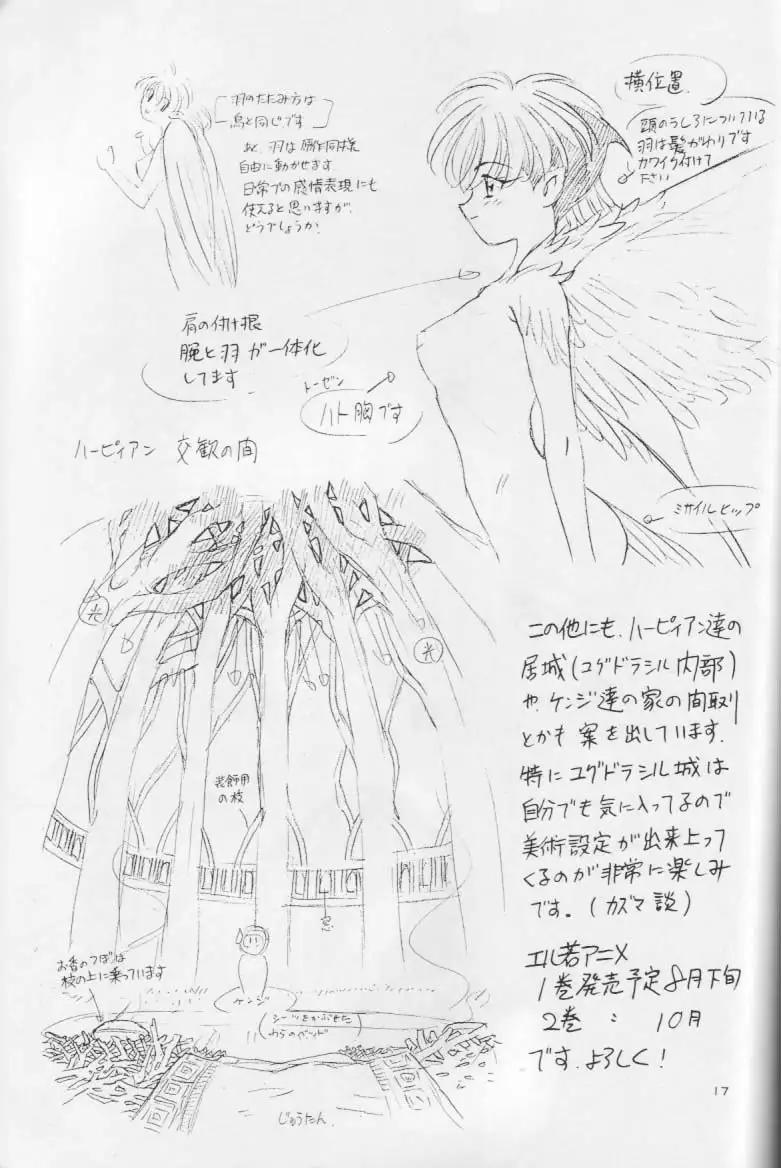 羽のたたみ方は
鳥と同じです
あと、羽は腕と同様
自由に動かせます
日常での感情表現にも
使えると思いますが、
どうでしょうか?
横位置
頭のうしろについている
羽は髪がわりです
カワイク付けて
下さい
肩の付け根
腕と羽が一体化
してます
トーゼン
ハト胸です
ミサイルヒップ
ハーピィアン 交歓の間
光
光
装飾用
の枝
窓
お香のつぼは
枝の上に乗っています
ケンジ
シーツをかぶせた
わらのベッド
じゅうたん
この他にも、ハーピィアン達の
居城(ユグドラシル内部)
や、ケンジ達の家の間取り
とかも案を出しています。
特にユグドラシル城は
自分でも気に入ってるので
美術設定が出来上って
くるのが非常に楽しみ
です。(カズマ談)
エル若アニメ
1巻発売予定8月下旬
2巻 : 10月
です。よろしく!
17